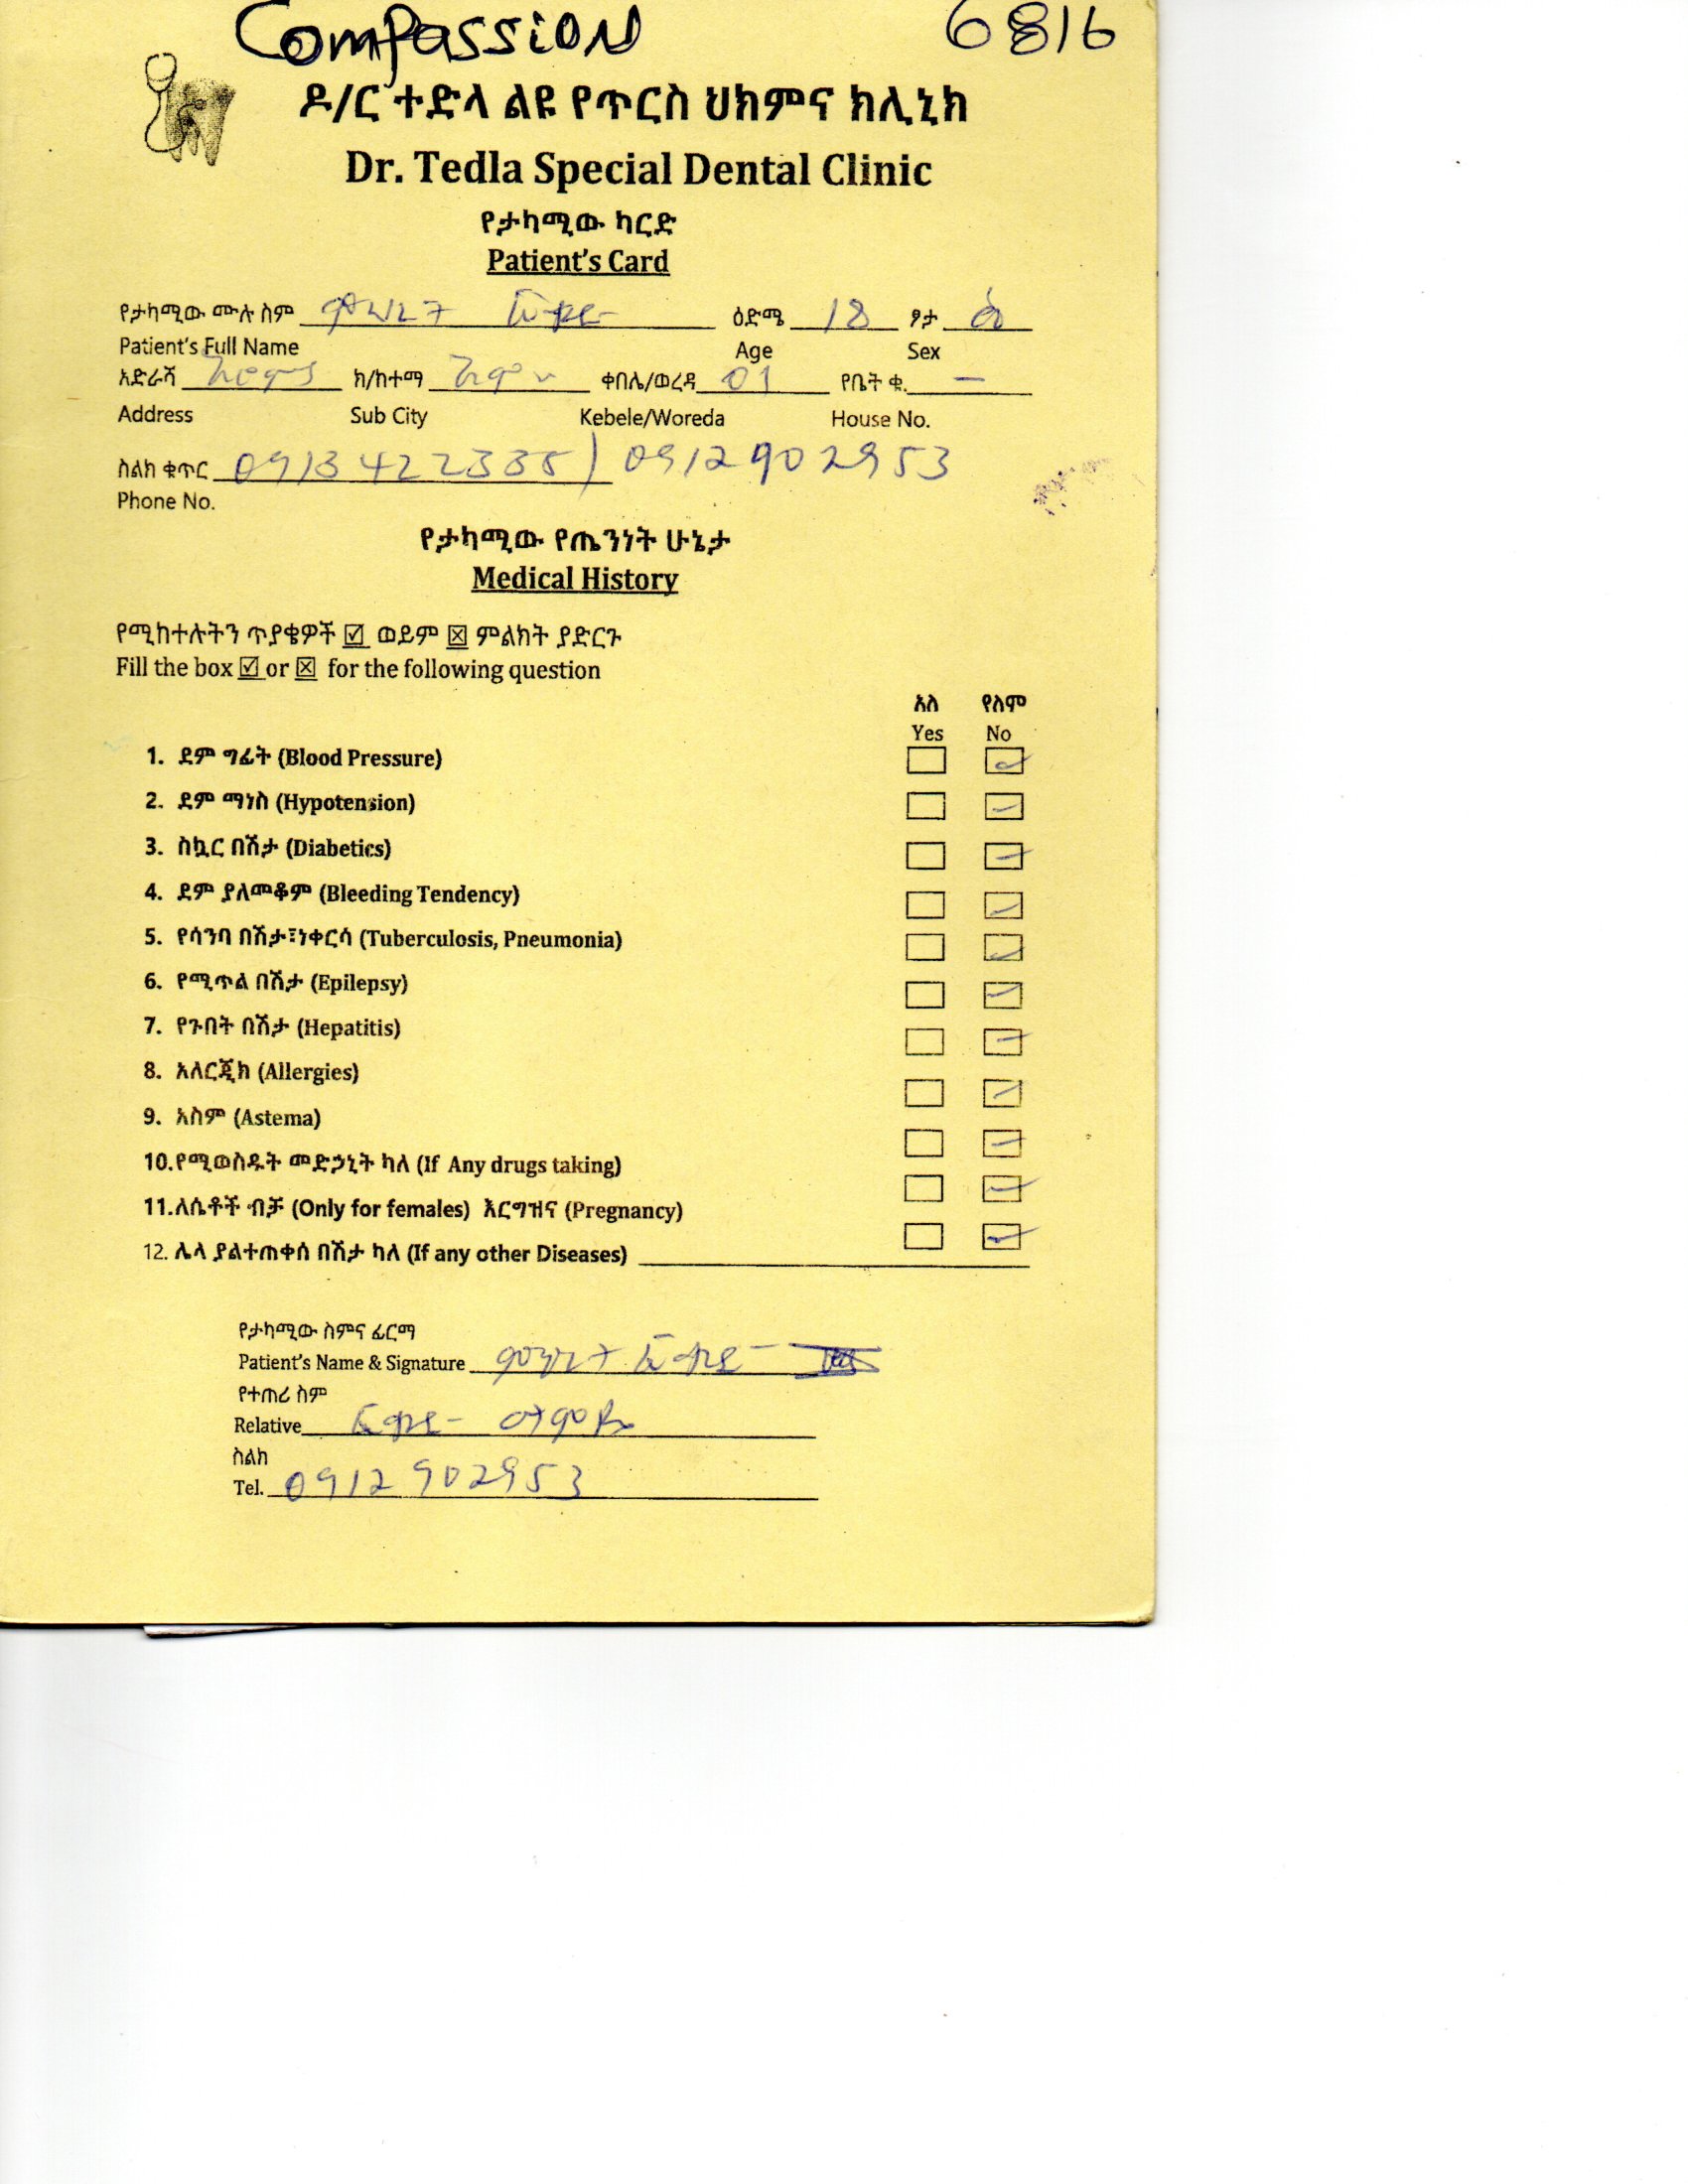 Compassion 6816
ዶ/ር ተድላ ልዩ የጥርስ ህክምና ክሊኒክ
Dr. Tedla Special Dental Clinic
የታካሚው ካርድ
Patient's Card
የታካሚው ሙሉ ስም ዕድሜ 18 ፆታ
Patient's Full Name Age Sex
አድራሻ ክ/ከተማ ቀበሌ/ወረዳ 01 የቤት ቁ. —
Address Sub City Kebele/Woreda House No.
ስልክ ቁጥር 0913422335 / 0912902953
Phone No.
የታካሚው የጤንነት ሁኔታ
Medical History
የሚከተሉትን ጥያቄዎች ☑ ወይም ☒ ምልክት ያድርጉ
Fill the box ☑ or ☒ for the following question
አለ የለም
Yes No
1. ደም ግፊት (Blood Pressure)
2. ደም ማነስ (Hypotension)
3. ስኳር በሽታ (Diabetics)
4. ደም ያለመቆም (Bleeding Tendency)
5. የሳንባ በሽታ፣ነቀርሳ (Tuberculosis, Pneumonia)
6. የሚጥል በሽታ (Epilepsy)
7. የጉበት በሽታ (Hepatitis)
8. አለርጂክ (Allergies)
9. አስም (Astema)
10.የሚወስዱት መድኃኒት ካለ (If Any drugs taking)
11.ለሴቶች ብቻ (Only for females) እርግዝና (Pregnancy)
12. ሌላ ያልተጠቀሰ በሽታ ካለ (If any other Diseases)
የታካሚው ስምና ፊርማ
Patient's Name & Signature
የተጠሪ ስም
Relative
ስልክ
Tel. 0912902953